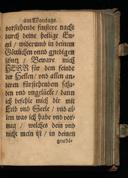 am Montage.
vorstehende finstere nacht
durch deine heilige En-
gel / wider und in deinem
Göttlichen
schutz / Beware mich
HERR für dem feinde
der Seelen / und allen an-
deren fürstehenden scha-
den und unglücke / dann
ich befehle mich dir mit
Leib und Seele / und al-
lem was ich habe und ver-
mag / welches dein und
nicht mein ist / in deinem